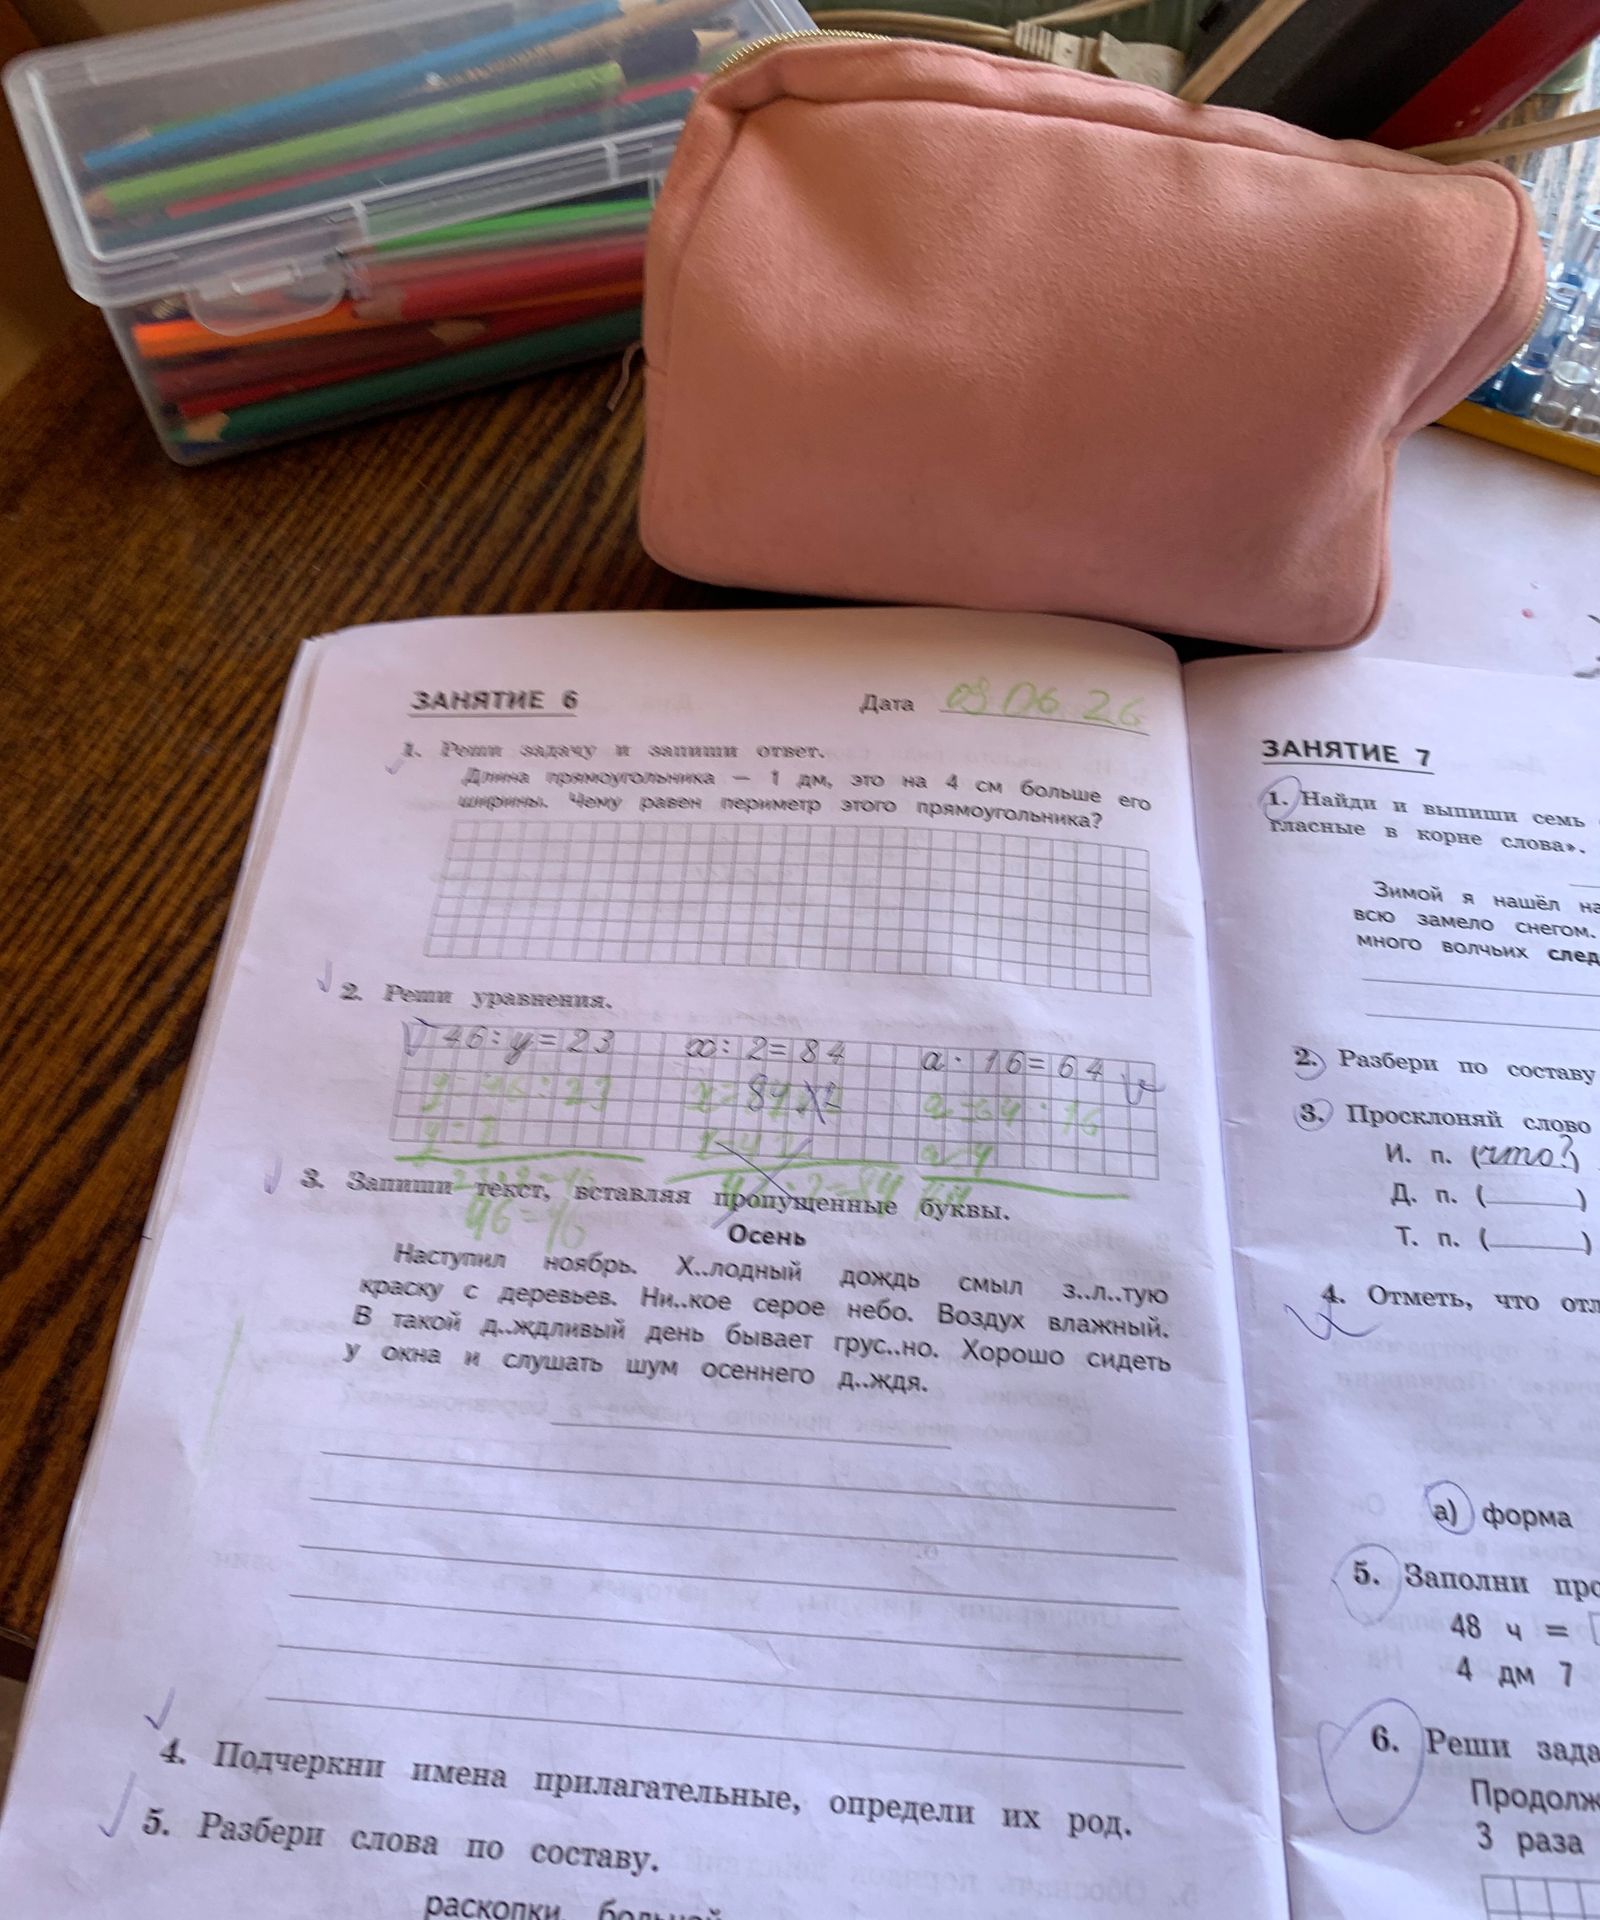 ЗАНЯТИЕ 6
Дата 09 06 26
1. Реши задачу и запиши ответ.
Длина прямоугольника — 1 дм, это на 4 см больше его
ширины. Чему равен периметр этого прямоугольника?
2. Реши уравнения.
46 : y = 23 x : 2 = 84 a · 16 = 64
y = 46 : 23 x = 84 a = 64 : 16
y = 2 a 4
46 = 46
3. Запиши текст, вставляя пропущенные буквы.
Осень
Наступил ноябрь. Х..лодный дождь смыл з..л..тую
краску с деревьев. Ни..кое серое небо. Воздух влажный.
В такой д..ждливый день бывает грус..но. Хорошо сидеть
у окна и слушать шум осеннего д..ждя.
4. Подчеркни имена прилагательные, определи их род.
5. Разбери слова по составу.
раскопки, большой
ЗАНЯТИЕ 7
1. Найди и выпиши семь
гласные в корне слова».
Зимой я нашёл на
всю замело снегом.
много волчьих след
2. Разбери по составу
3. Просклоняй слово
И. п. (что?)
Д. п. (______)
Т. п. (______)
4. Отметь, что отл
а) форма
5. Заполни про
48 ч =
4 дм 7
6. Реши зада
Продолж
3 раза